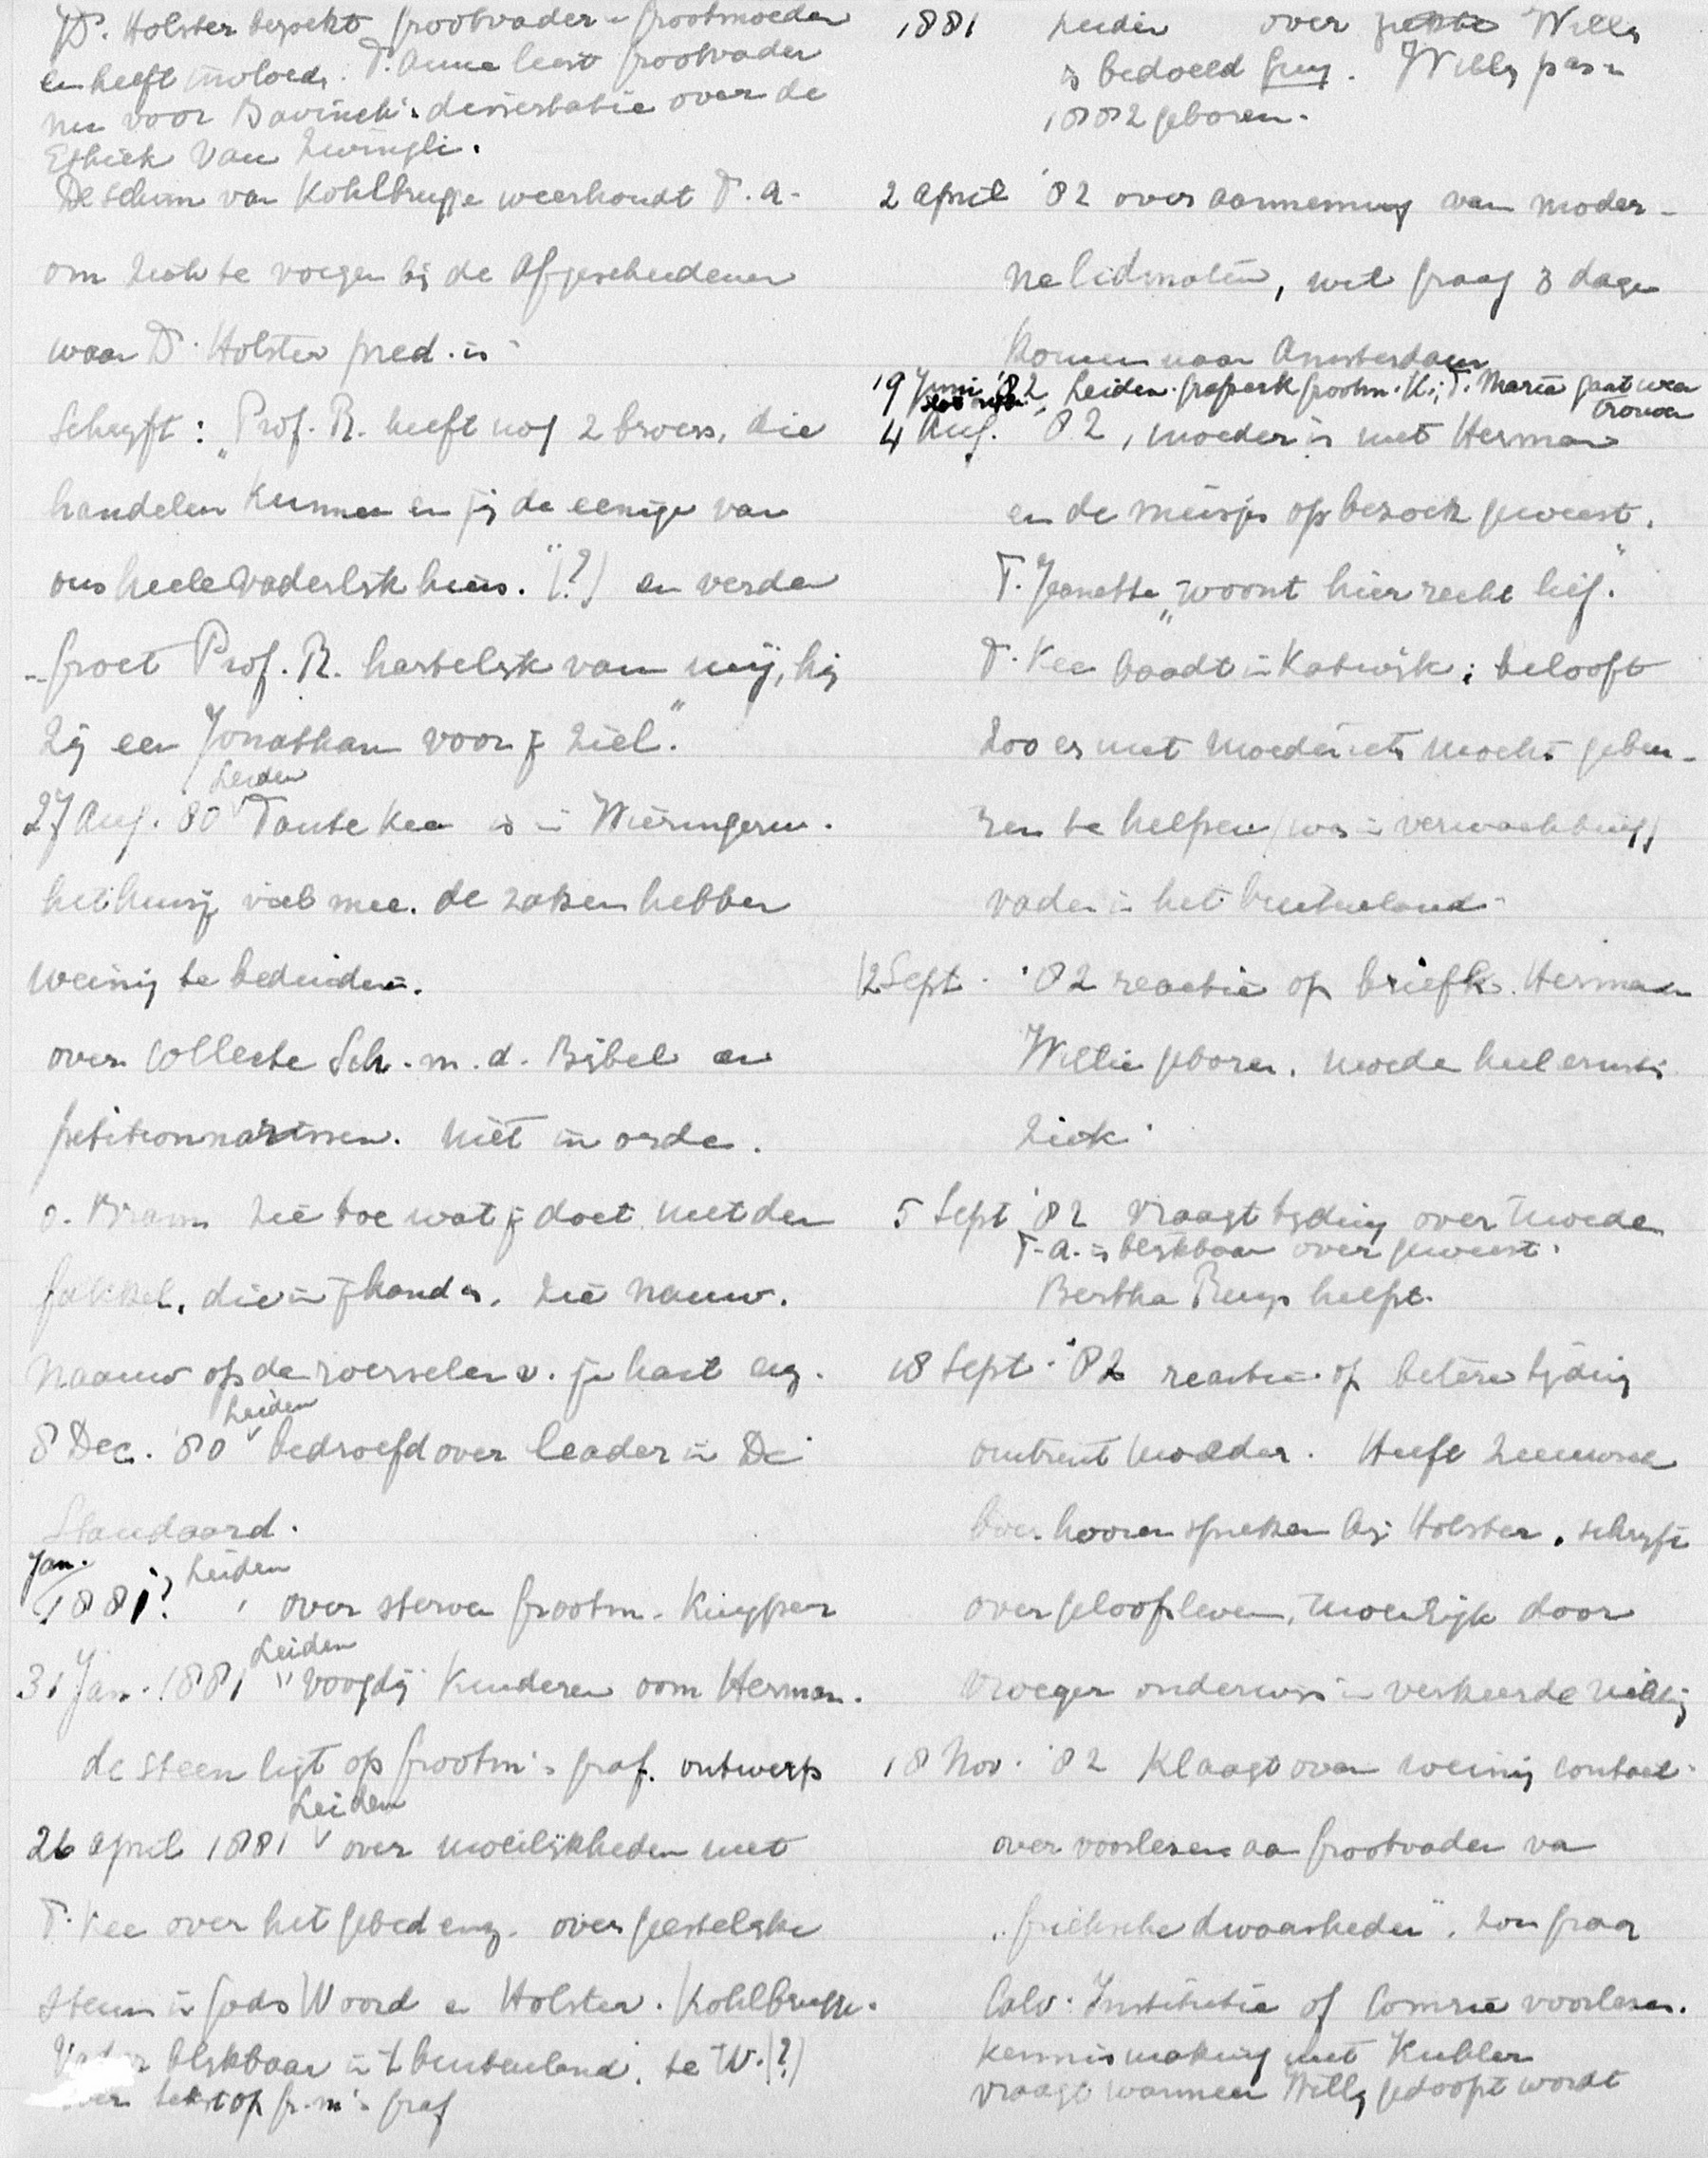 Ds. Holster bezoekt Grootvader - Grootmoeder
en heeft invloed. T. Anna leest Grootvader
nu voor Bavinck's dissertatie over de
Ethiek van Zwingli.
De schim van Kohlbrugge weerhoudt T. A.
om zich te voegen bij de Afgescheidenen
waar Ds. Holster pred. is
Schryft: "Prof. R. heeft nog 2 broers, die
handelen kunnen en jij de eenige van
ons heele vaderlijk huis." (?) en verder
"Groet Prof. R. hartelijk van mij, hij
zij een Jonathan voor je ziel."
Leiden
27 Aug. 80 Tante Kee is in Wieringerw.
het huisje viel mee. de zaken hebben
weinig te beduiden.
over collecte Sch. m. d. Bijbel en
petitionnarissen. niet in orde.
o. Bram zie toe wat je doet met den
fakkel, die in je hand is. zie nauw.
Naauw op de roerselen v. je hart enz.
Leiden
8 Dec. '80 bedroefd over leader in De
Standaard.
Jan. Leiden
1881? , over sterven Grootm. Kuyper
Leiden
31 Jan. 1881 " voogdij kinderen oom Herman.
de steen ligt op Grootm's graf. ontwerp
Leiden
26 April 1881 over moeilijkheden met
T. Kee over het gebed enz. over geestelijke
steun in Gods Woord en Holster. Kohlbrugge.
blijkbaar in 't buitenland. te W. (?)
tekst op gr. m's graf
1881 Leiden over ziekte Willy
is bedoeld Guy. Willy pas in
1882 geboren.
2 April '82 over aanneming van moder-
ne lidmaten, wil graag 3 dagen
komen naar Amsterdam
19 Juni '82 Leiden. grafperk grootm. K.; T. Maria gaat weer
trouwen
4 Aug. '82, moeder is met Herman
en de meisjes op bezoek geweest.
T. Jeanette "woont hier recht lief."
T. Kee baadt in Katwijk; belooft
zoo er met Moeder iets mocht gebeu-
ren te helpen (was in verwachting)
vader in het buitenland.
12 Sept. '82 reactie op briefk. Herman
Willie geboren. moeder heel ernstig
ziek.
5 Sept '82 vraagt tyding over moeder
T. A. is blijkbaar over geweest.
Bertha Ruys helpt.
18 Sept. '82 reactie op betere tyding
omtrent moeder. Heeft
over hooren spreken bij Holster. schryft
over geloofsleven, moeilijk door
vroeger onderwijs in verkeerde richting
18 Nov. '82 Klaagt over weinig contact.
over voorlezen aan Grootvader van
"grieksche dwaasheden". zou graag
Calv. Institutie of Comrie voorlezen.
Kennismaking met Kubler
vraagt wanneer Willy gedoopt wordt